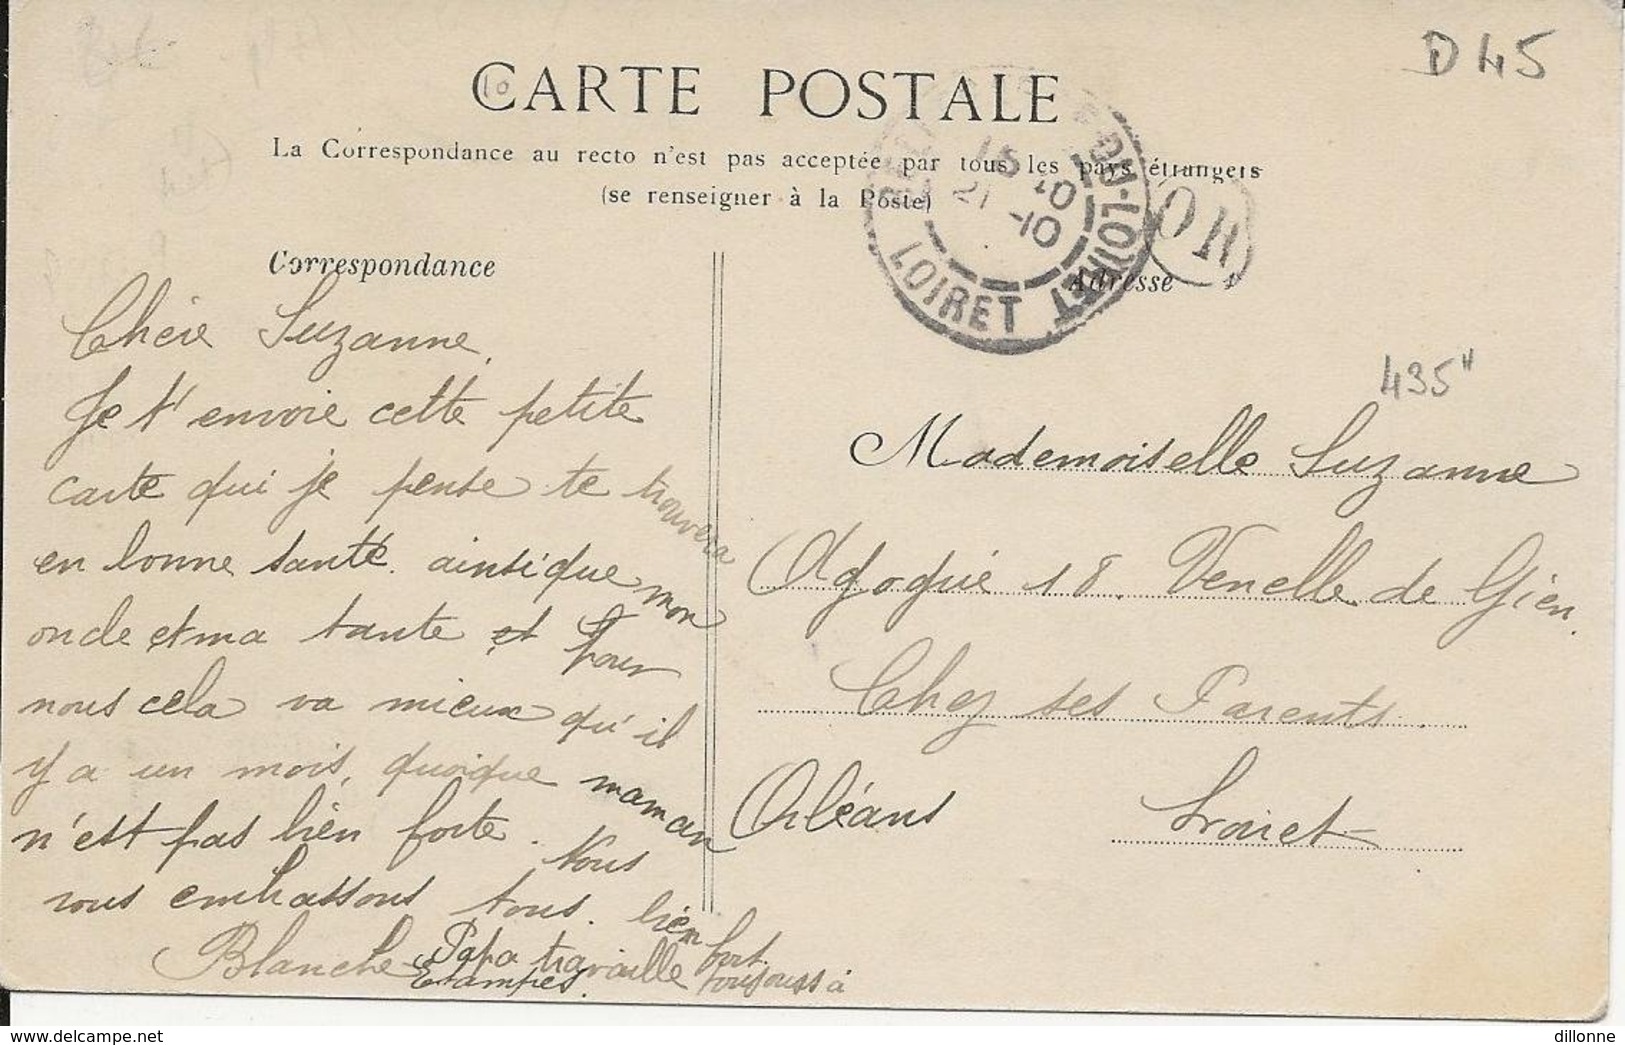 D 45
CARTE POSTALE
La Correspondance au recto n'est pas acceptée par tous les pays étrangers
(se renseigner à la Poste)
DU-LOIRET
15
21 10
-10
LOIRET
OR
Correspondance
Adresse
Chère Suzanne,
Je t'envoie cette petite
carte qui je pense te trouvera
en bonne santé. ainsi que mon
oncle et ma tante et pour
nous cela va mieux qu'il
y a un mois, quoique maman
n'est pas bien forte. Nous
vous embrassons tous. bien fort.
Blanche
Papa travaille toujours à
Etampes.
435"
Mademoiselle Suzanne
Agogué 18. Venelle de Gien.
Chez ses Parents.
Orléans Loiret
dillonne